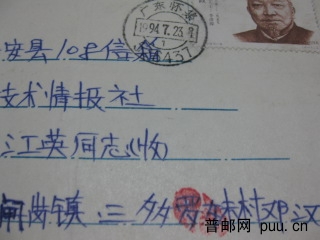 广东怀集
1994.7.23.8
安县108信箱
技术情报社
江英同志收
岗镇三多罗妹村邓汉
普邮网 puu.cn